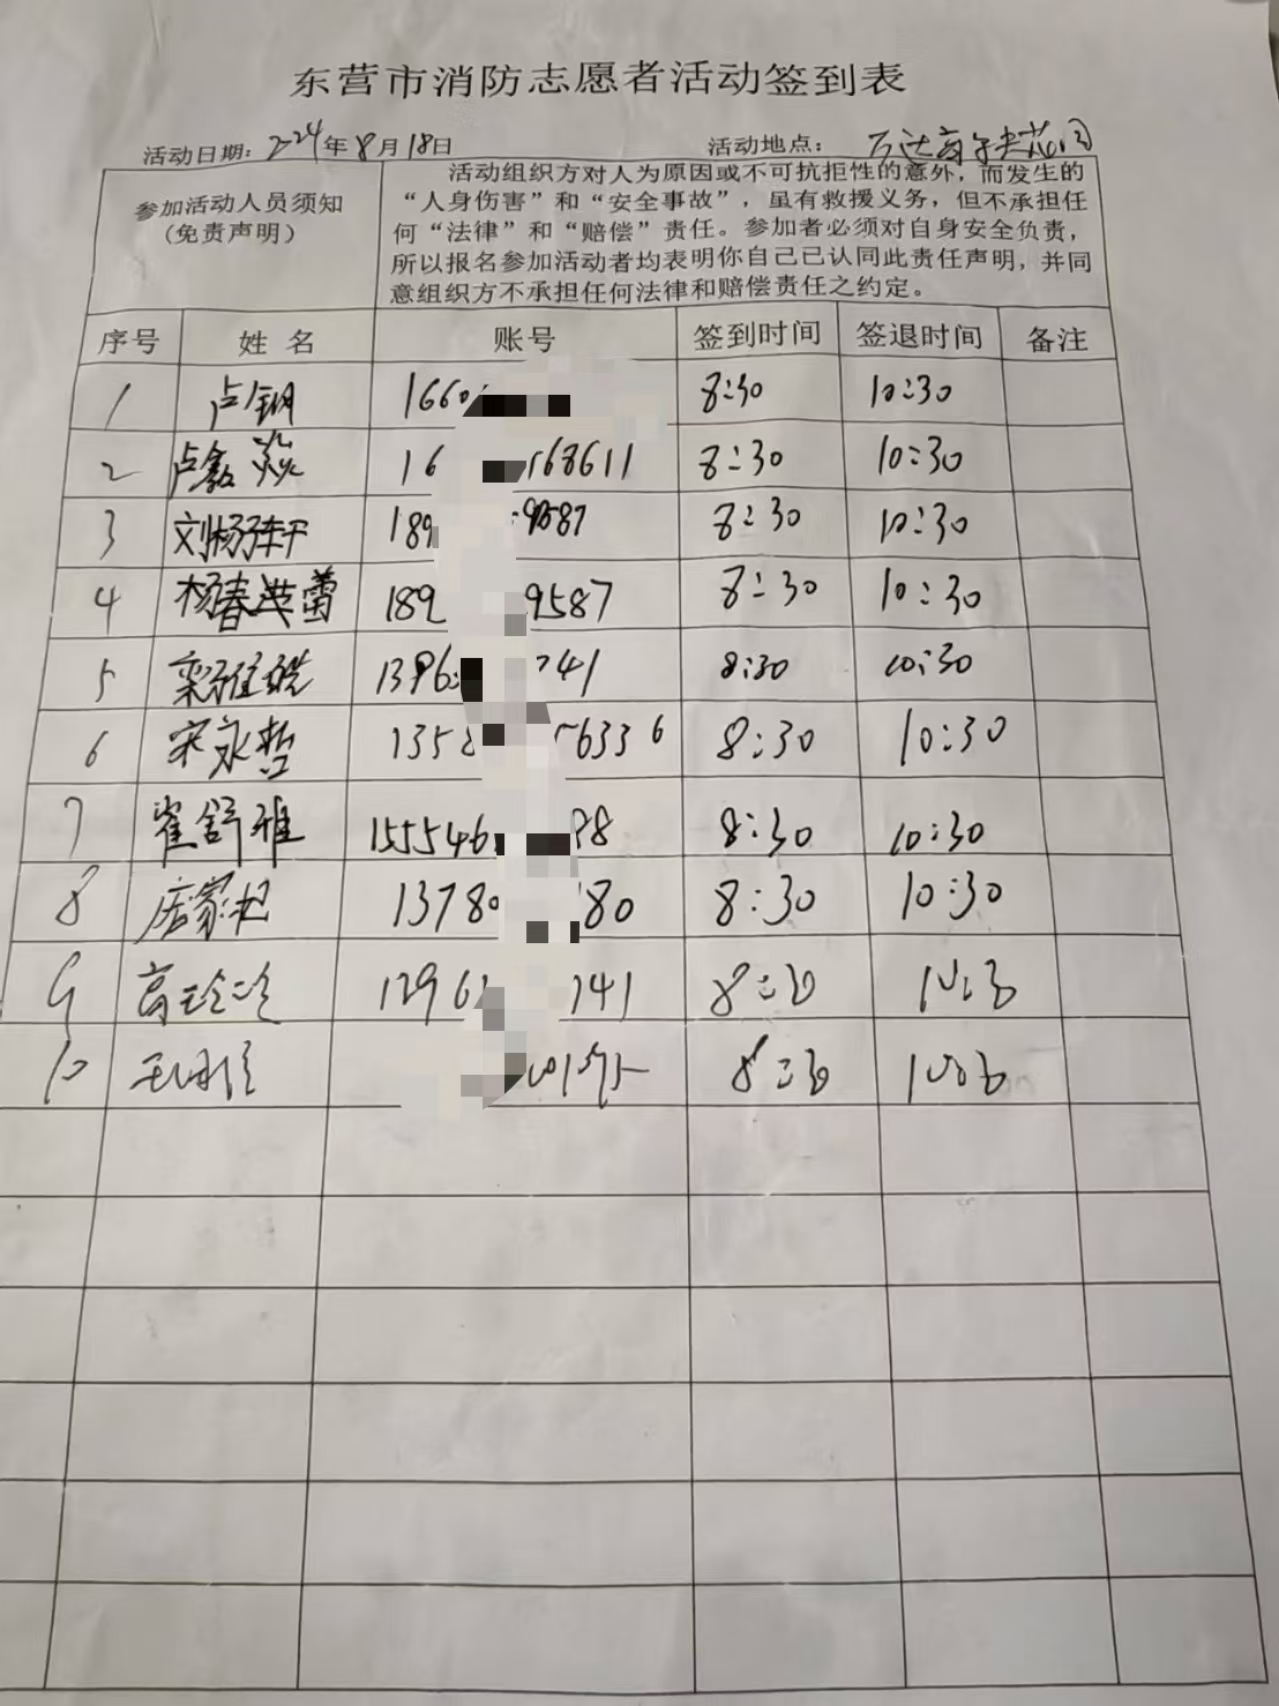 东营市消防志愿者活动签到表
活动日期：2024年8月18日 活动地点：万达
参加活动人员须知
（免责声明）
活动组织方对人为原因或不可抗拒性的意外，而发生的
“人身伤害”和“安全事故”，虽有救援义务，但不承担任
何“法律”和“赔偿”责任。参加者必须对自身安全负责，
所以报名参加活动者均表明你自己已认同此责任声明，并同
意组织方不承担任何法律和赔偿责任之约定。
序号 姓名 账号 签到时间 签退时间 备注
1 卢钢 1660 8:30 10:30
2 卢鑫焱 16 68611 8:30 10:30
3 刘杨 189 9587 8:30 10:30
4 杨春蕾 189 9587 8:30 10:30
5 1396 741 8:30 10:30
6 宋永哲 1358 56336 8:30 10:30
7 崔舒雅 155546 88 8:30 10:30
8 家 13780 180 8:30 10:30
9 高玲玲 1396 741 8:30 10:30
10 8:30 10:30